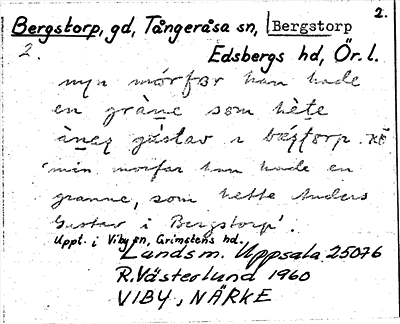 2.
Bergstorp, gd, Tångeråsa sn, Bergstorp
2. Edsbergs hd, Ör. l.
myn mórfar han hade
en gràne som hète
gústav i
'min morfar han hade en
granne, som hette Anders
Gustav i Bergstorp'.
Uppt. i Viby sn, Grimstens hd.
Landsm. Uppsala 25076
R. Västerlund 1960
VIBY, NÄRKE